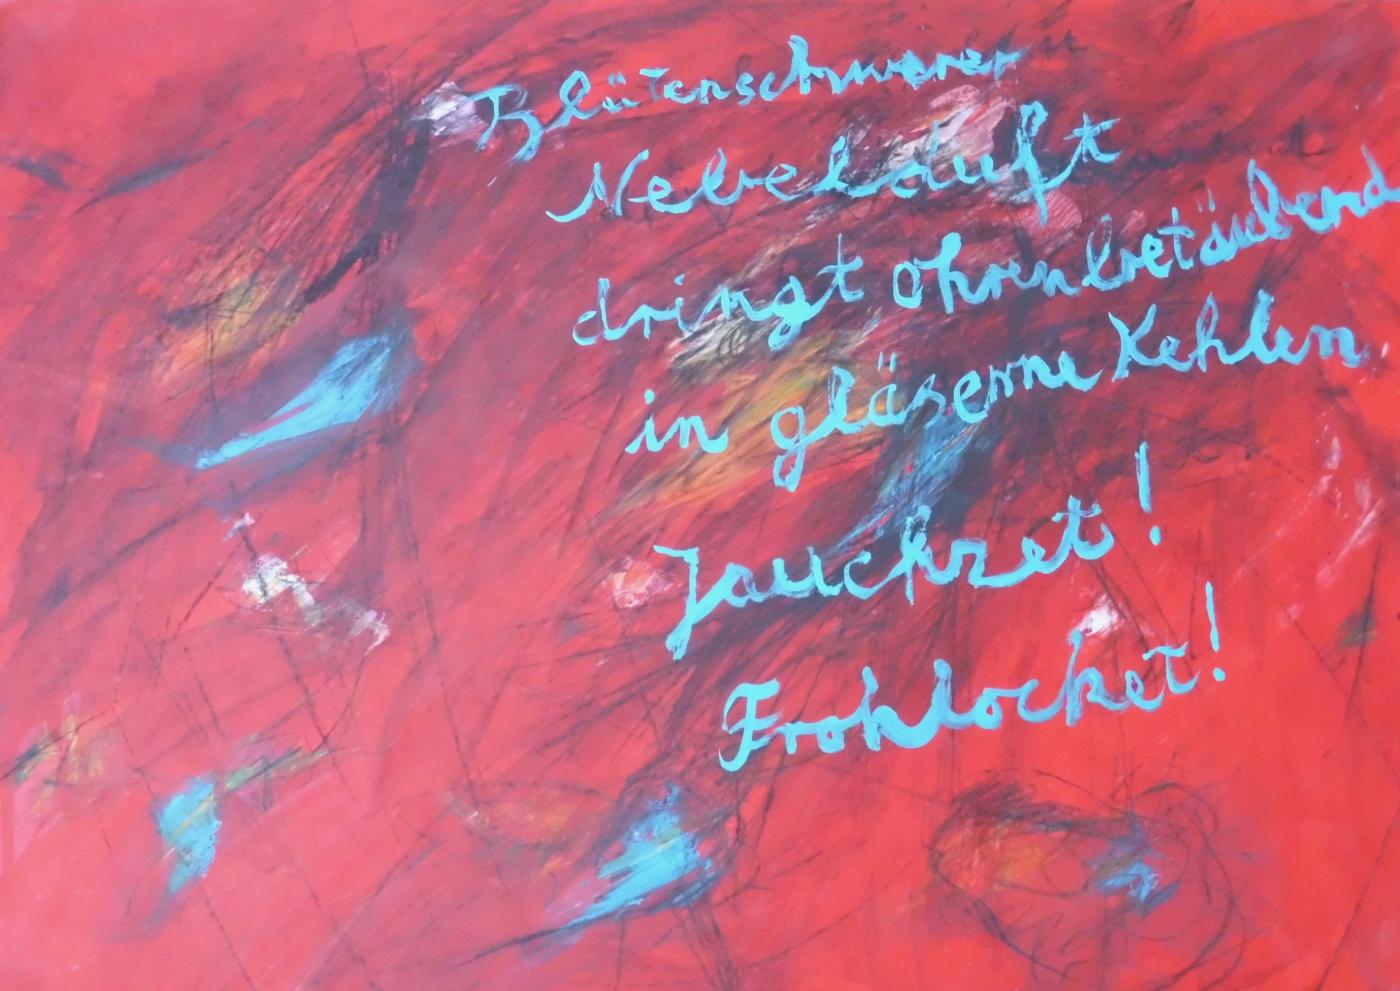 Blütenschwerer
Nebelduft
dringt ohrenbetäubend
in gläserne Kehlen
Jauchzet!
Frohlocket!